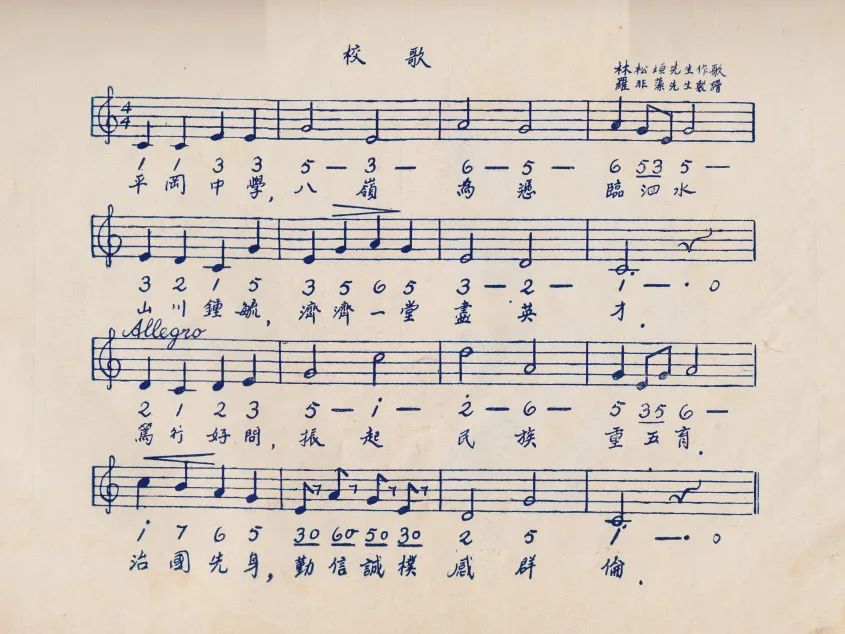 校歌
林松垣先生作歌
羅非藻先生製譜
4
4
1 1 3 3 5 — 3 — 6 — 5 — 6 53 5 —
平岡中學,八嶺為憑臨泗水
3 2 1 5 3 5 6 5 3 — 2 — 1 — · 0
山川鍾毓,濟濟一堂盡英才.
Allegro
2 1 2 3 5 — i — 2̇ — 6 — 5 35 6 —
篤行好問,振起民族重五育.
i 7 6 5 30 60 50 30 2 5 1 — · 0
治國先身,勤信誠樸感群倫.